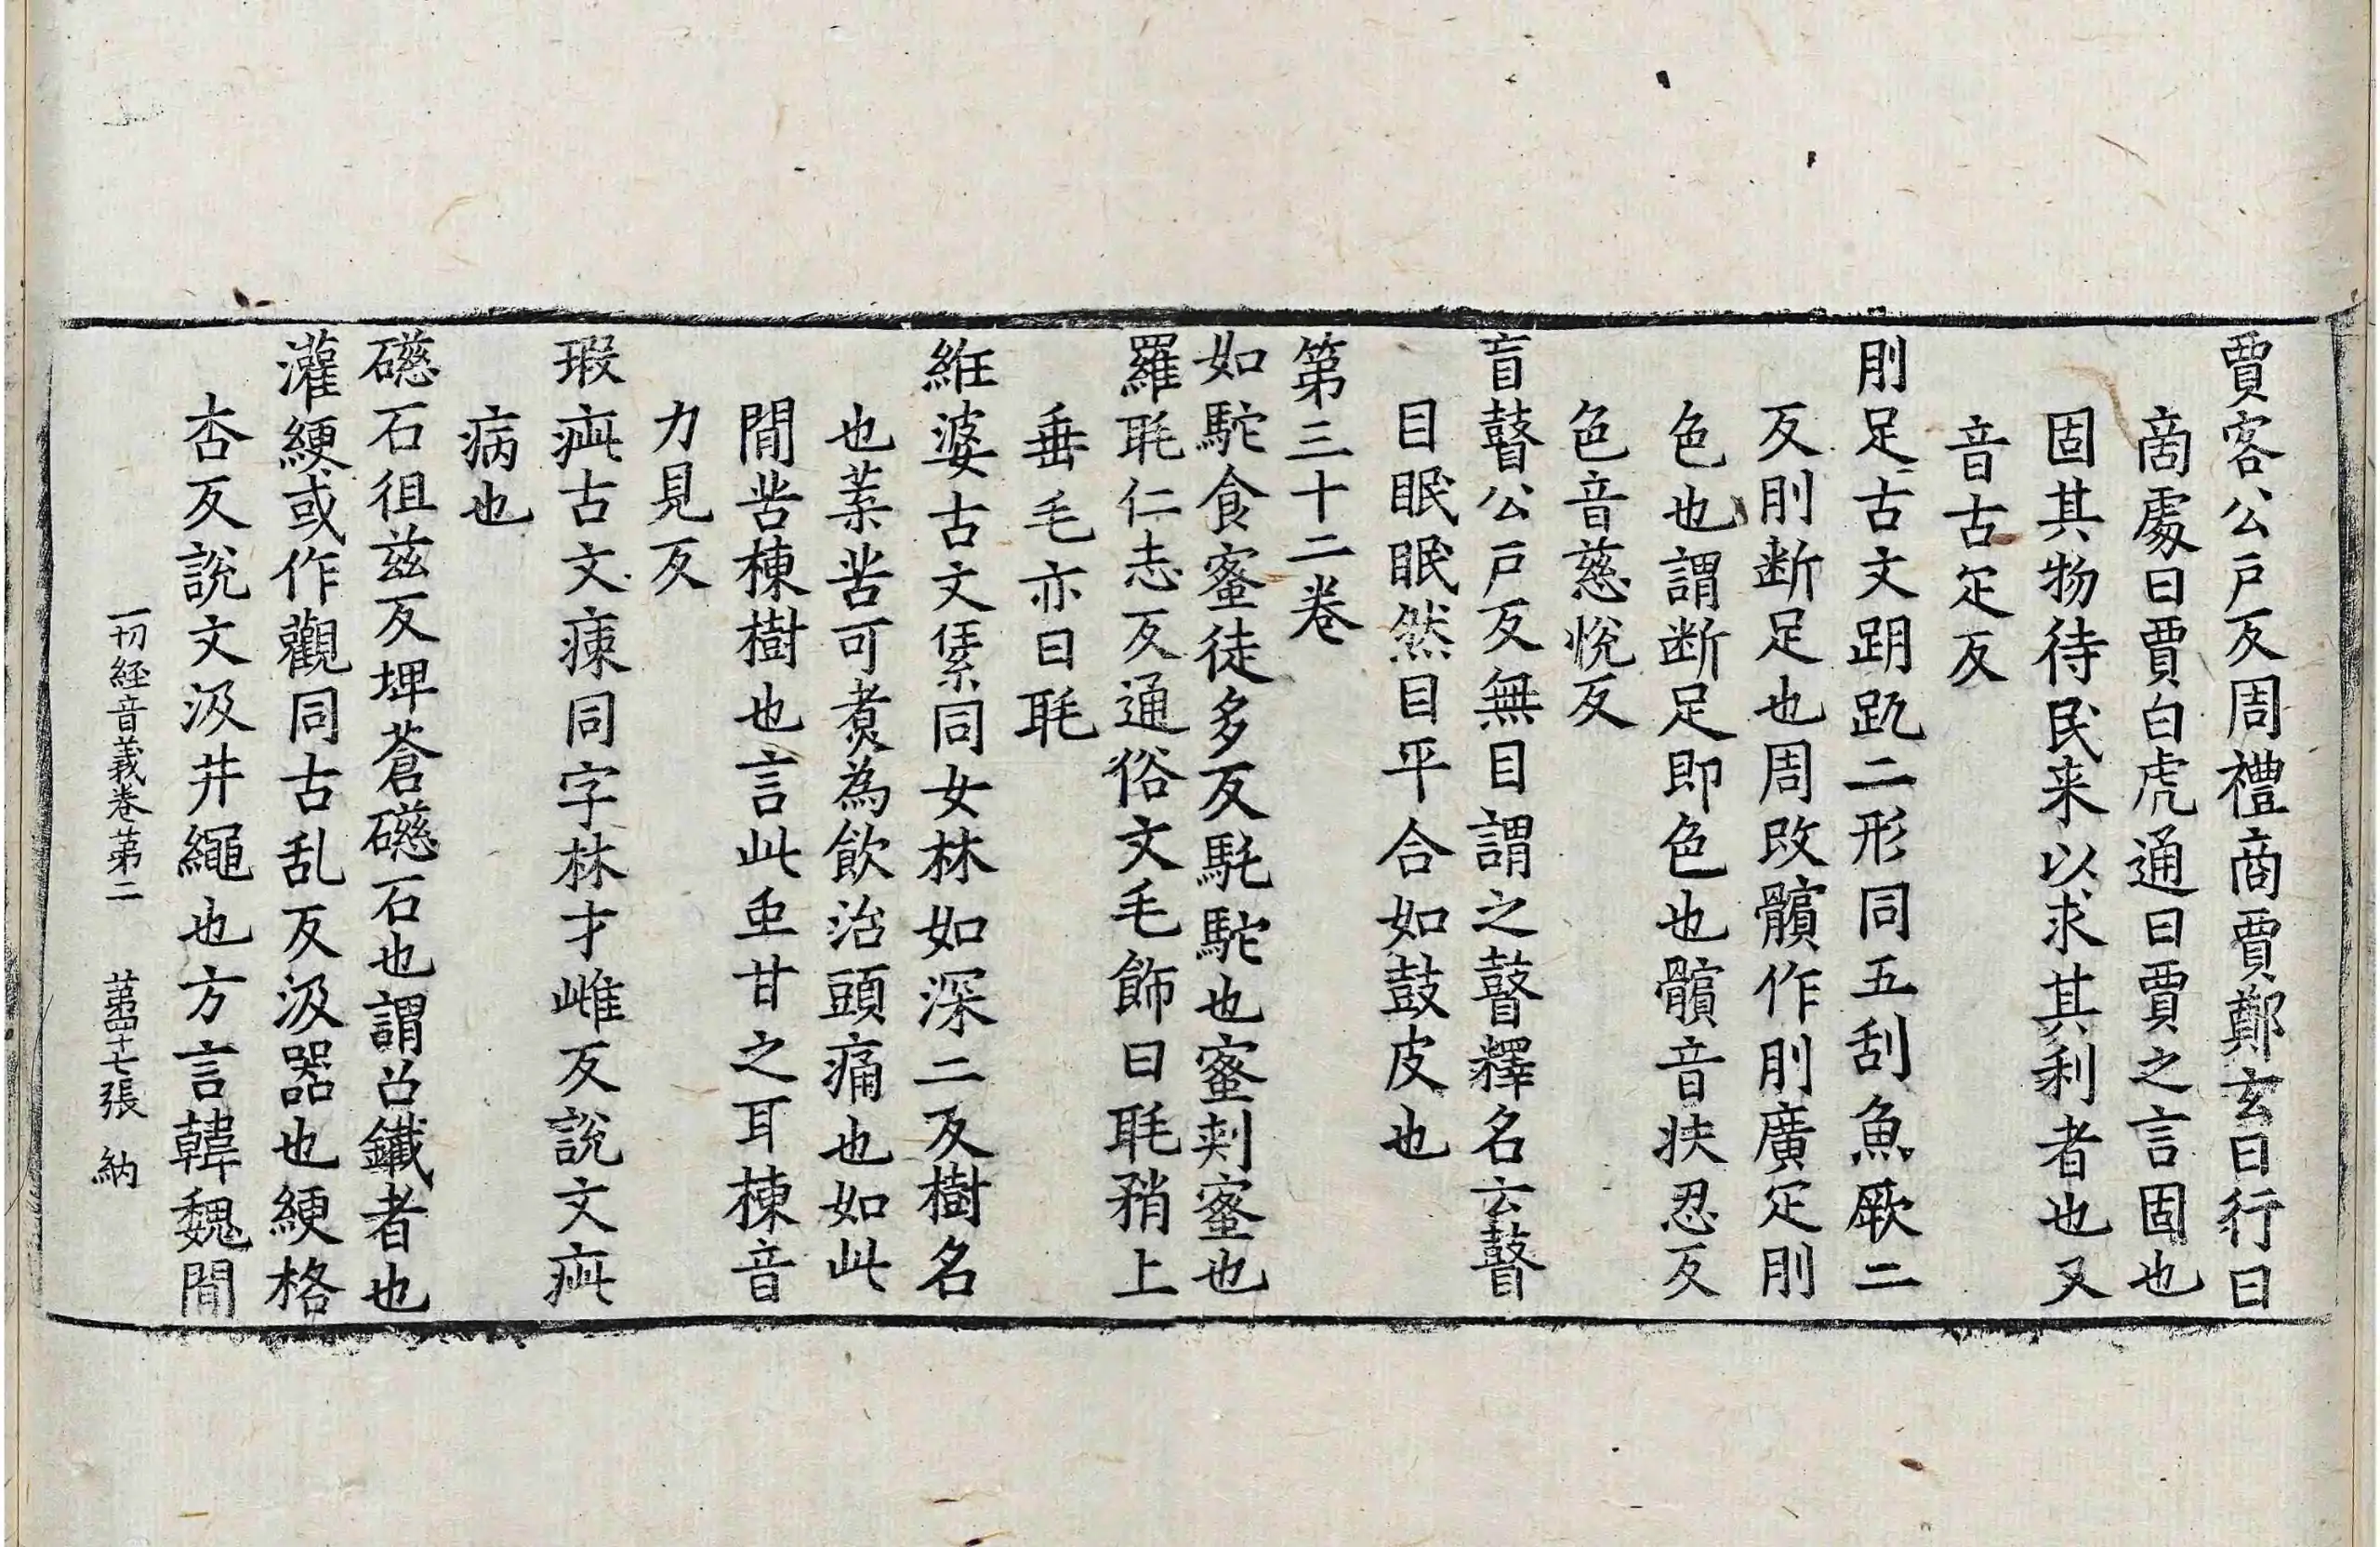 賈客公戶反周禮商賈鄭玄曰行曰
啇處曰賈白虎通曰賈之言固也
固其物待民来以求其利者也又
音古疋反
刖足古文跀𧿁二形同五刮魚厥二
反刖断足也周改髕作刖廣疋刖
色也謂断足即色也髕音扶忍反
色音慈悅反
盲瞽公戶反無目謂之瞽釋名云瞽
目眠眠然目平合如鼓皮也
第三十二卷
如駝食蜜徒多反馲駝也蜜刾蜜也
羅毦仁志反通俗文毛飾曰毦矟上
垂毛亦曰毦
絍婆古文𦀌同女林如深二反樹名
也葉苦可煑為飲治頭痛也如此
閒苦楝樹也言此虫甘之耳楝音
力見反
瑕疵古文㾊同字林才雌反說文疵
病也
礠石徂茲反埤蒼礠石也謂召鐵者也
灌綆或作觀同古乱反汲器也綆格
杏反說文汲井繩也方言韓魏閒
一切経音義卷苐二 苐四十七張 納